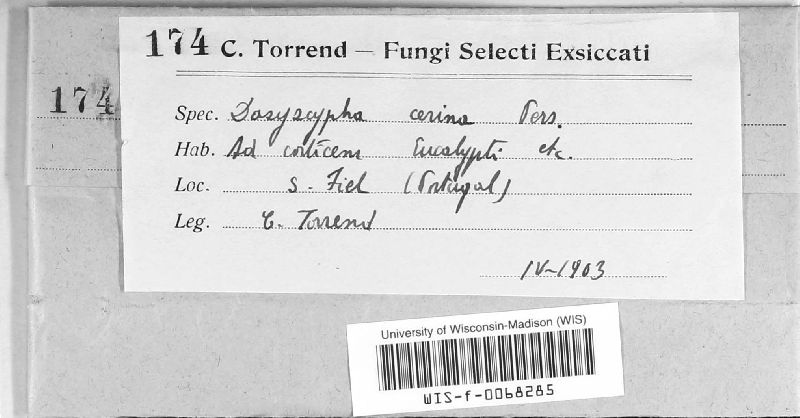 174 C. Torrend — Fungi Selecti Exsiccati
174
Spec. Dasyscypha cerina Pers.
Hab. Ad corticem Eucalypti etc.
Loc. S. Fiel (Portugal)
Leg. C. Torrend
IV-1903
University of Wisconsin-Madison (WIS)
WIS-f-0068285